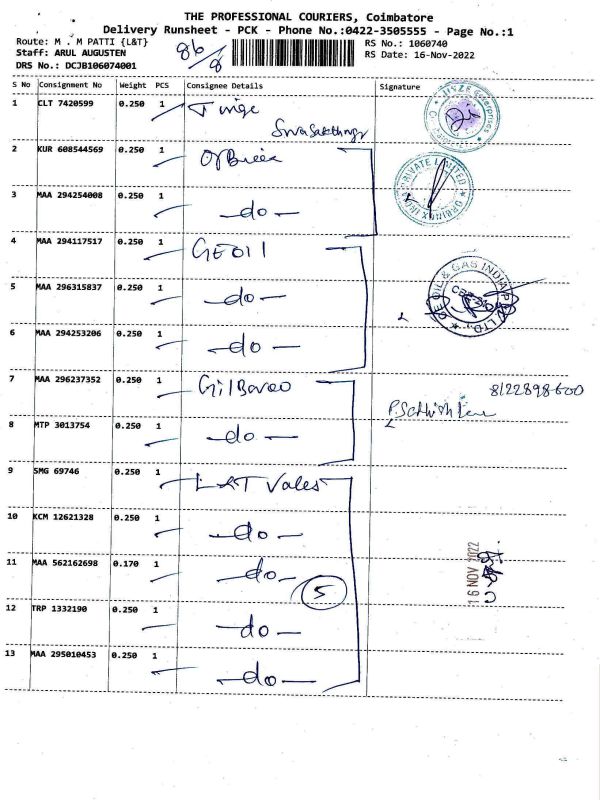 THE PROFESSIONAL COURIERS, Coimbatore
Delivery Runsheet - PCK - Phone No.:0422-3505555 - Page No.:1
Route: M . M PATTI {L&T}
86/8
RS No.: 1060740
Staff: ARUL AUGUSTEN
RS Date: 16-Nov-2022
DRS No.: DCJB106074001
S No Consignment No Weight PCS Consignee Details Signature
1 CLT 7420599 0.250 1
2 KUR 608544569 0.250 1
PRIVATE LIMITED
3 MAA 294254008 0.250 1 -do-
4 MAA 294117517 0.250 1 GEOil
OIL & GAS INDIA
LTD
5 MAA 296315837 0.250 1 -do-
6 MAA 294253206 0.250 1 -do-
7 MAA 296237352 0.250 1
8122898600
8 MTP 3013754 0.250 1 -do-
9 SMG 69746 0.250 1 L&T Vales
10 KCM 12621328 0.250 1 -do-
11 MAA 562162698 0.170 1 -do-
5
16 NOV 2022
12 TRP 1332190 0.250 1 -do-
13 MAA 295010453 0.250 1 -do-